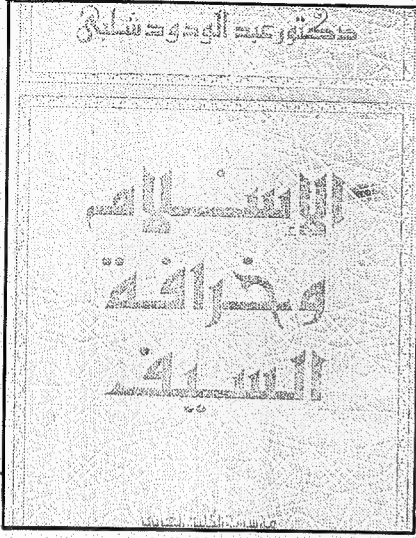 دكتور عبد الودود شلبي
الإسلام
وخرافة
السيف